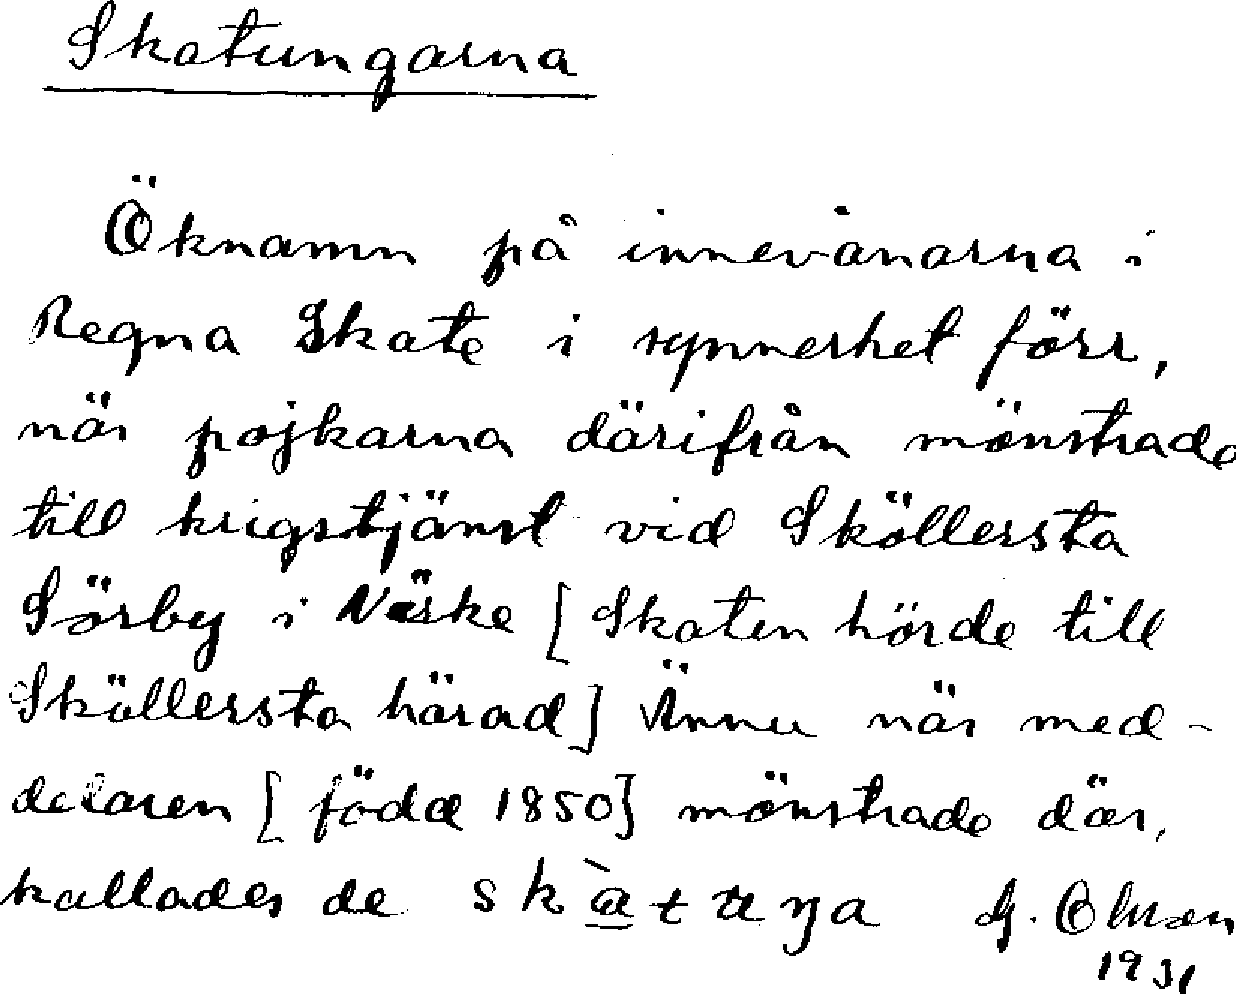 Skatungarna
Öknamn på innevånarna i
Regna Skate i synnerhet förr,
när pojkarna därifrån mönstrade
till krigstjänst vid Sköllersta
Sörby i Närke [Skaten hörde till
Sköllersta härad] Ännu när med-
delaren [född 1850] mönstrade där,
kallades de skàtuŋa G. Olsson
1931